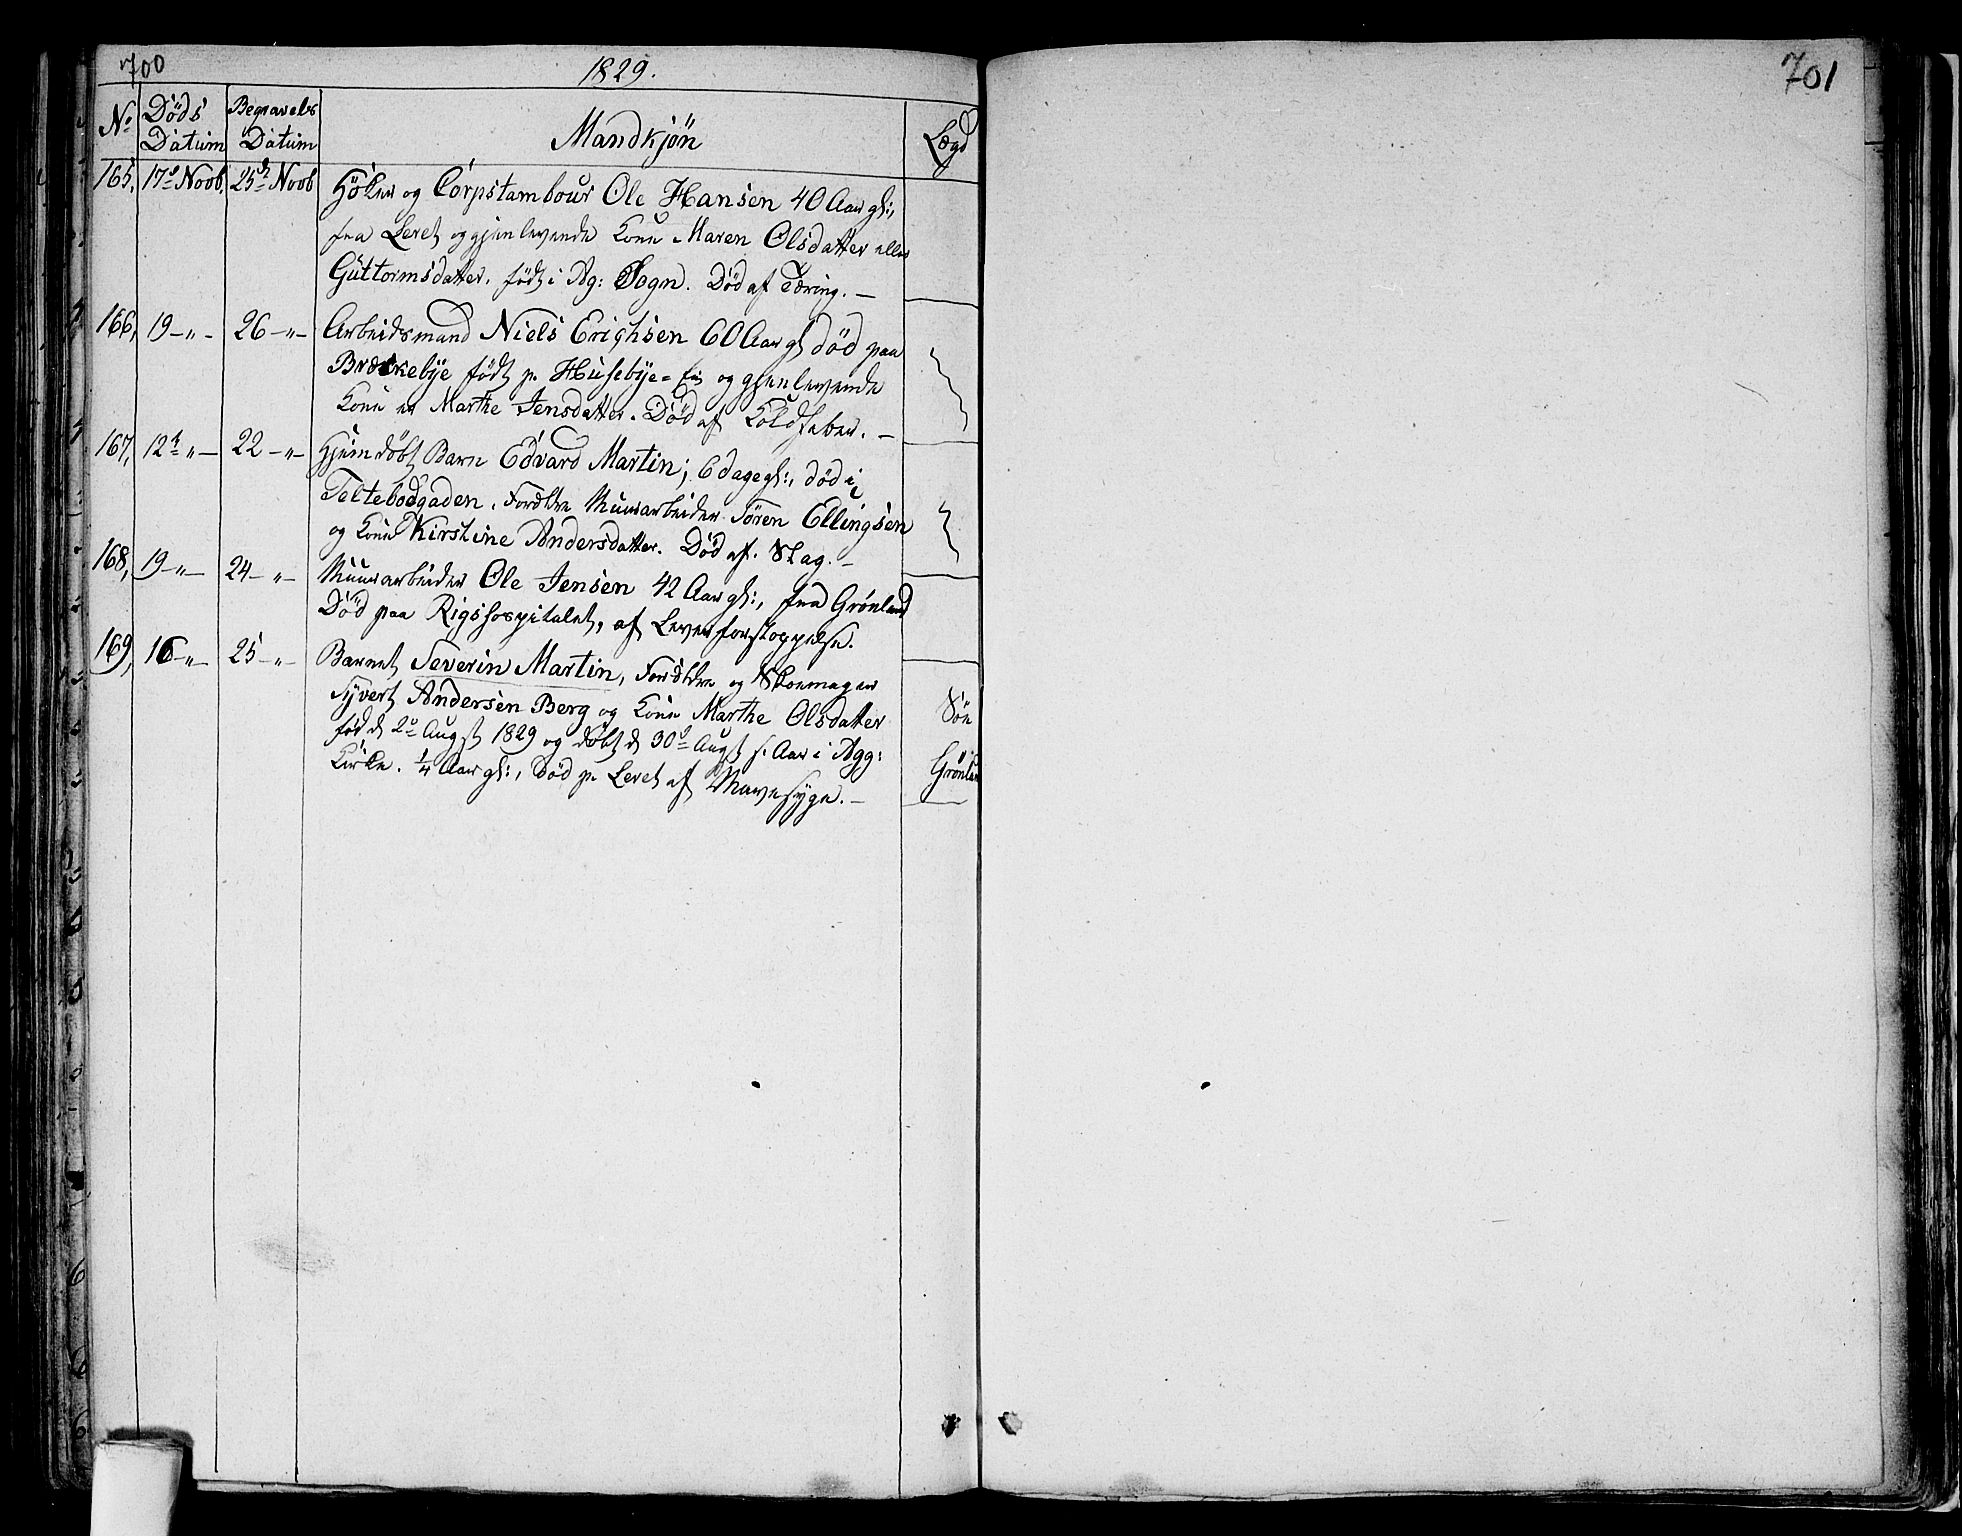 700
1829.
701
No. Døds Datum Begravels Datum Mandkjön Lægd
165, 17de Novb. 25de Novb Höker og Corpstambour Ole Hansen 40 Aar gl:,
fra Leret og gjenlevende Kone Maren Olsdatter eller
Guttormsdatter. født i Ag: Sogn. Död af Tæring. —
166, 19 – „ – 26 – „ – Arbeidsmand Niels Erichsen 60 Aar gl död paa
Brækkebye født p. Husebye= og gjenlevende
Kone er Marthe Jensdatter. Död af Koldfeber. —
167, 12te „ – 22 – „ – Hjemdöbt Barn Edvard Martin; 6 dage gl:, död i
Teltebodgaden. Forældre Muurarbeider Sören Ellingsen
og Kone Kirstine Andersdatter. Död af. Slag. –
168, 19 – „ – 24 – „ – Muurarbeider Ole Jensen 42 Aar gl:, fra Grönland
Död paa Rigshospitalet, af Leverforstoppelse.
169, 16 – „ – 25 – „ – Barnet Severin Martin, Forældre og Skoemager
Syvert Andersen Berg og Kone Marthe Olsdatter Sön
fød d 2de Augst 1829 og döbt d 30de Augst s. Aar i Agg:
Kirke. 1/4 Aar gl:, Död p. Leret af Mavesyge. — Grönland